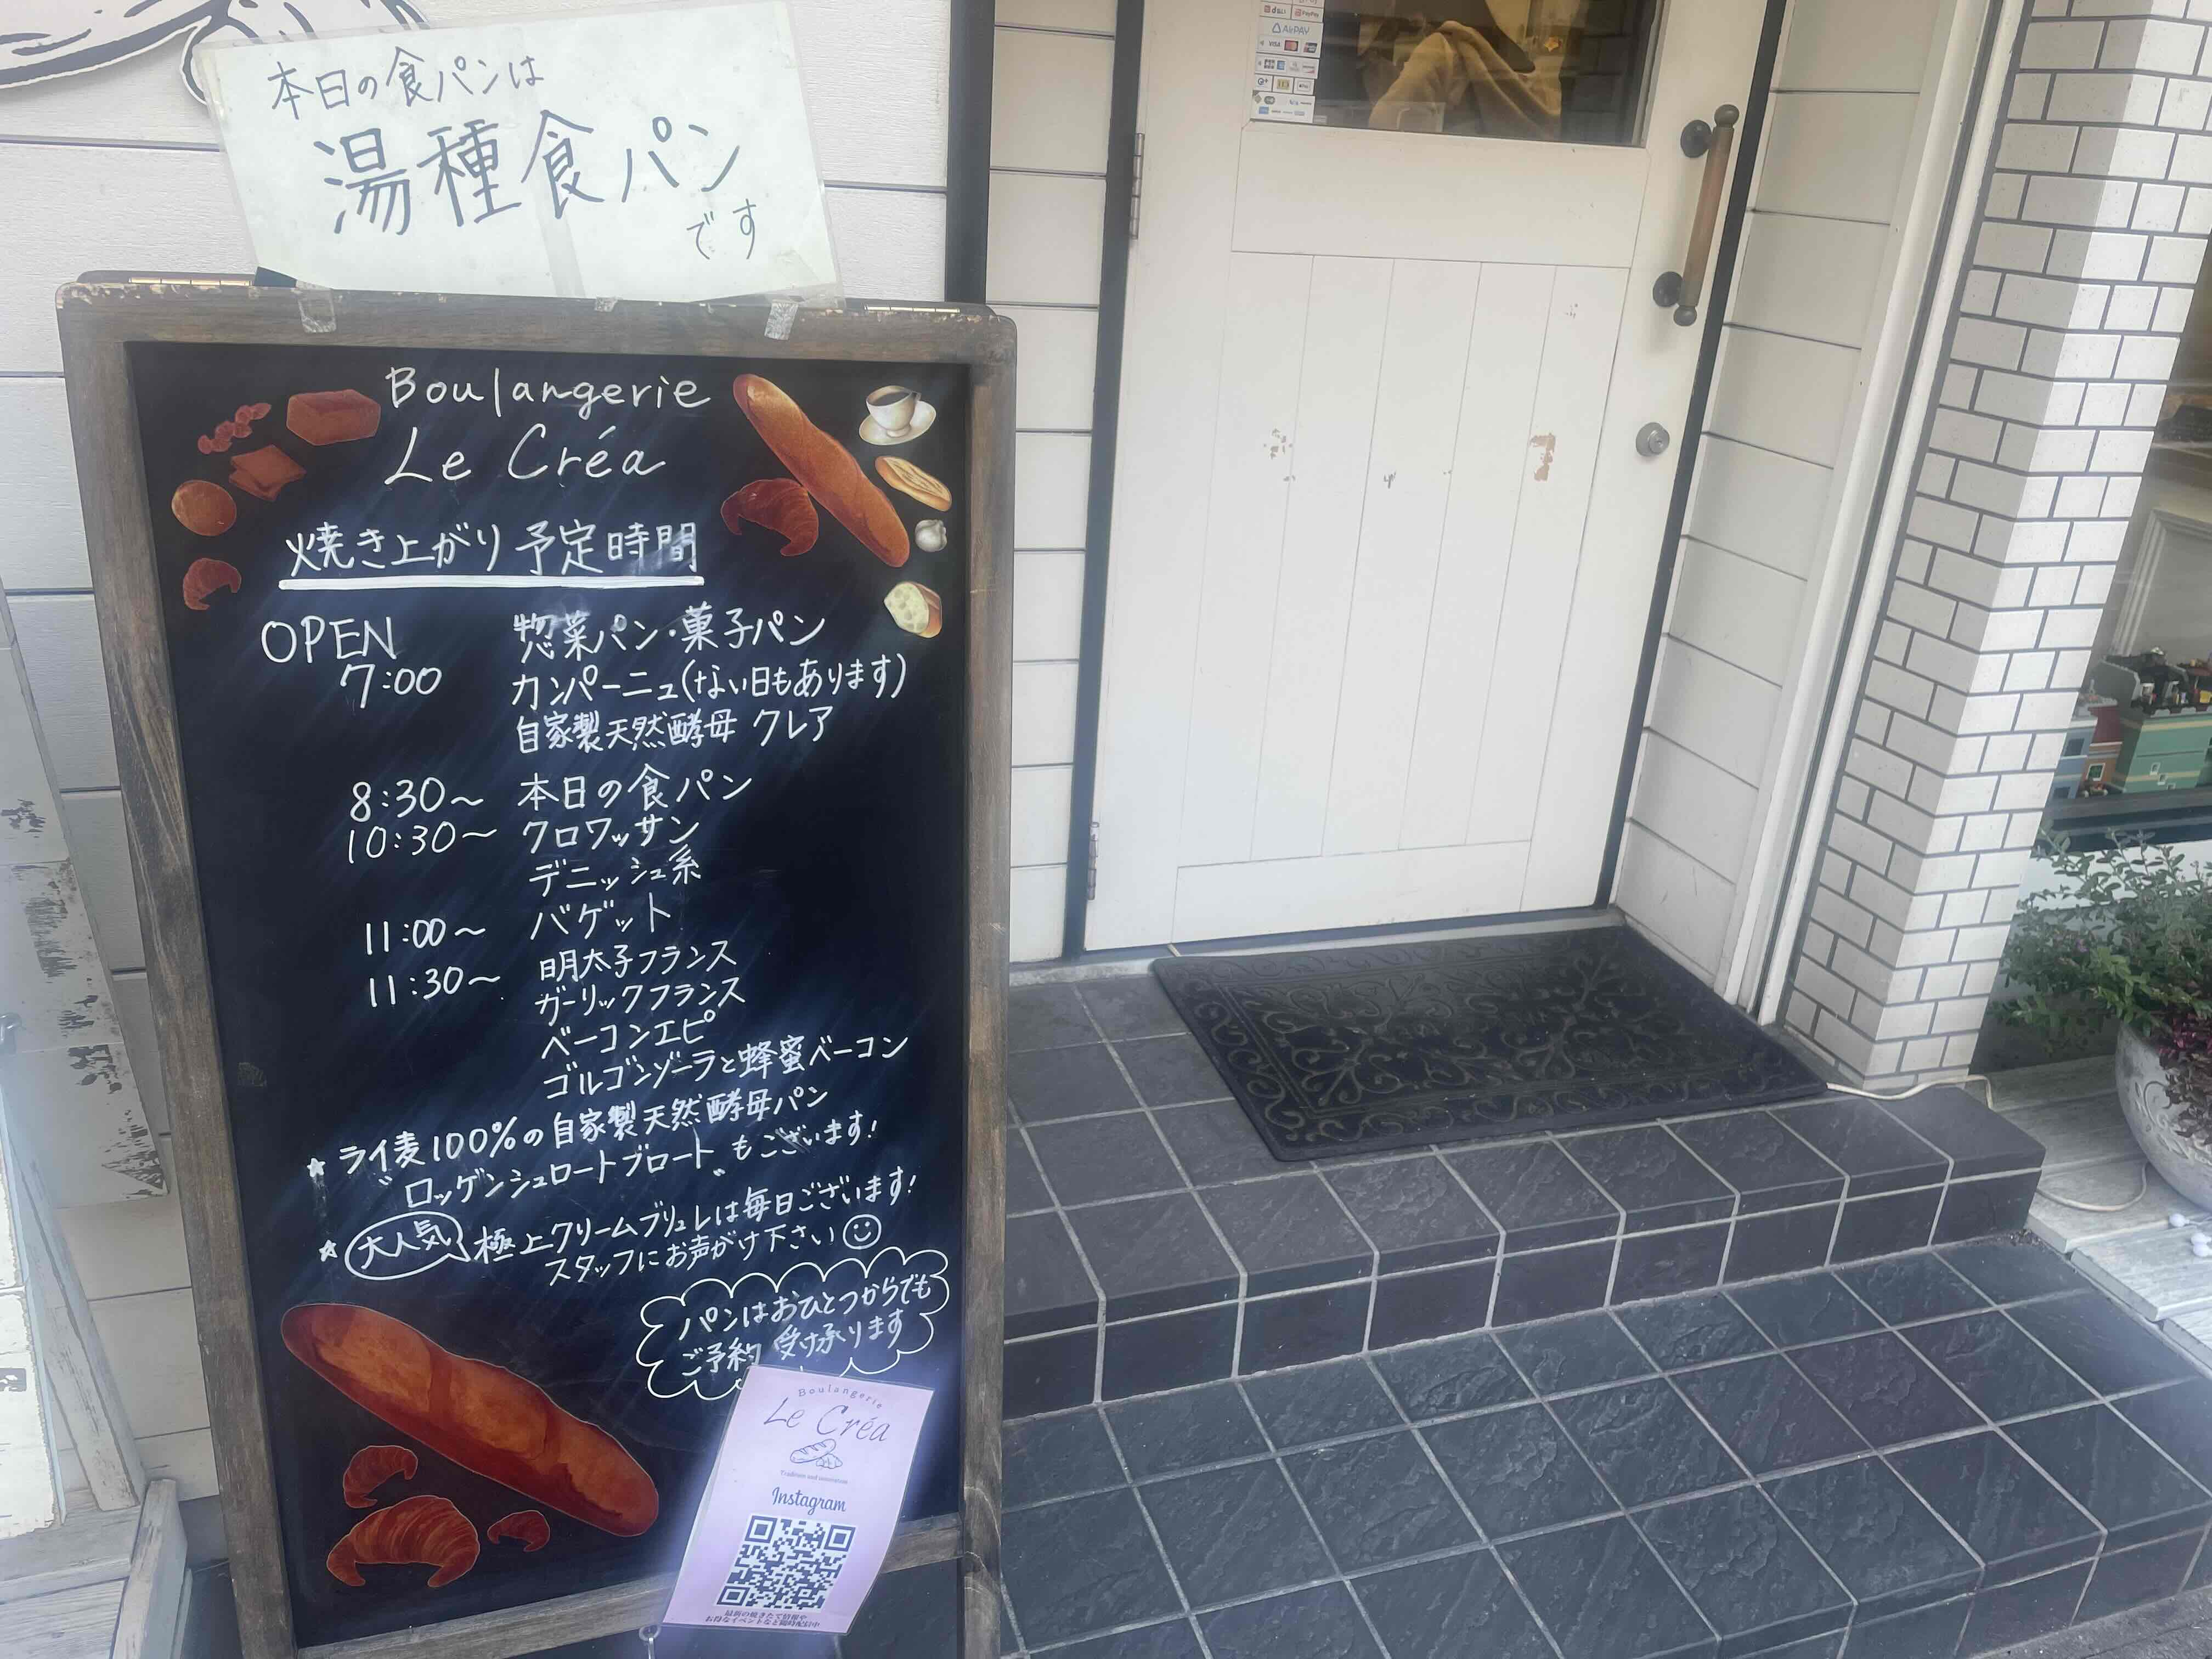 本日の食パンは
湯種食パン
です
Boulangerie
Le Créa
焼き上がり予定時間
OPEN
7:00 惣菜パン・菓子パン
カンパーニュ(ない日もあります)
自家製天然酵母 クレア
8:30〜 本日の食パン
10:30〜 クロワッサン
デニッシュ系
11:00〜 バゲット
11:30〜 明太子フランス
ガーリックフランス
ベーコンエピ
ゴルゴンゾーラと蜂蜜ベーコン
☆ ライ麦100%の自家製天然酵母パン
"ロッゲンシュロートブロート"もございます!
☆ 大人気 極上クリームブリュレは毎日ございます!
スタッフにお声がけ下さい
パンはおひとつからでも
ご予約 受け承ります
Boulangerie
Le Créa
Tradition and innovation
Instagram
最新の焼きたて情報や
お得なイベントなど随時配信中
d払い PayPay
AirPAY
VISA